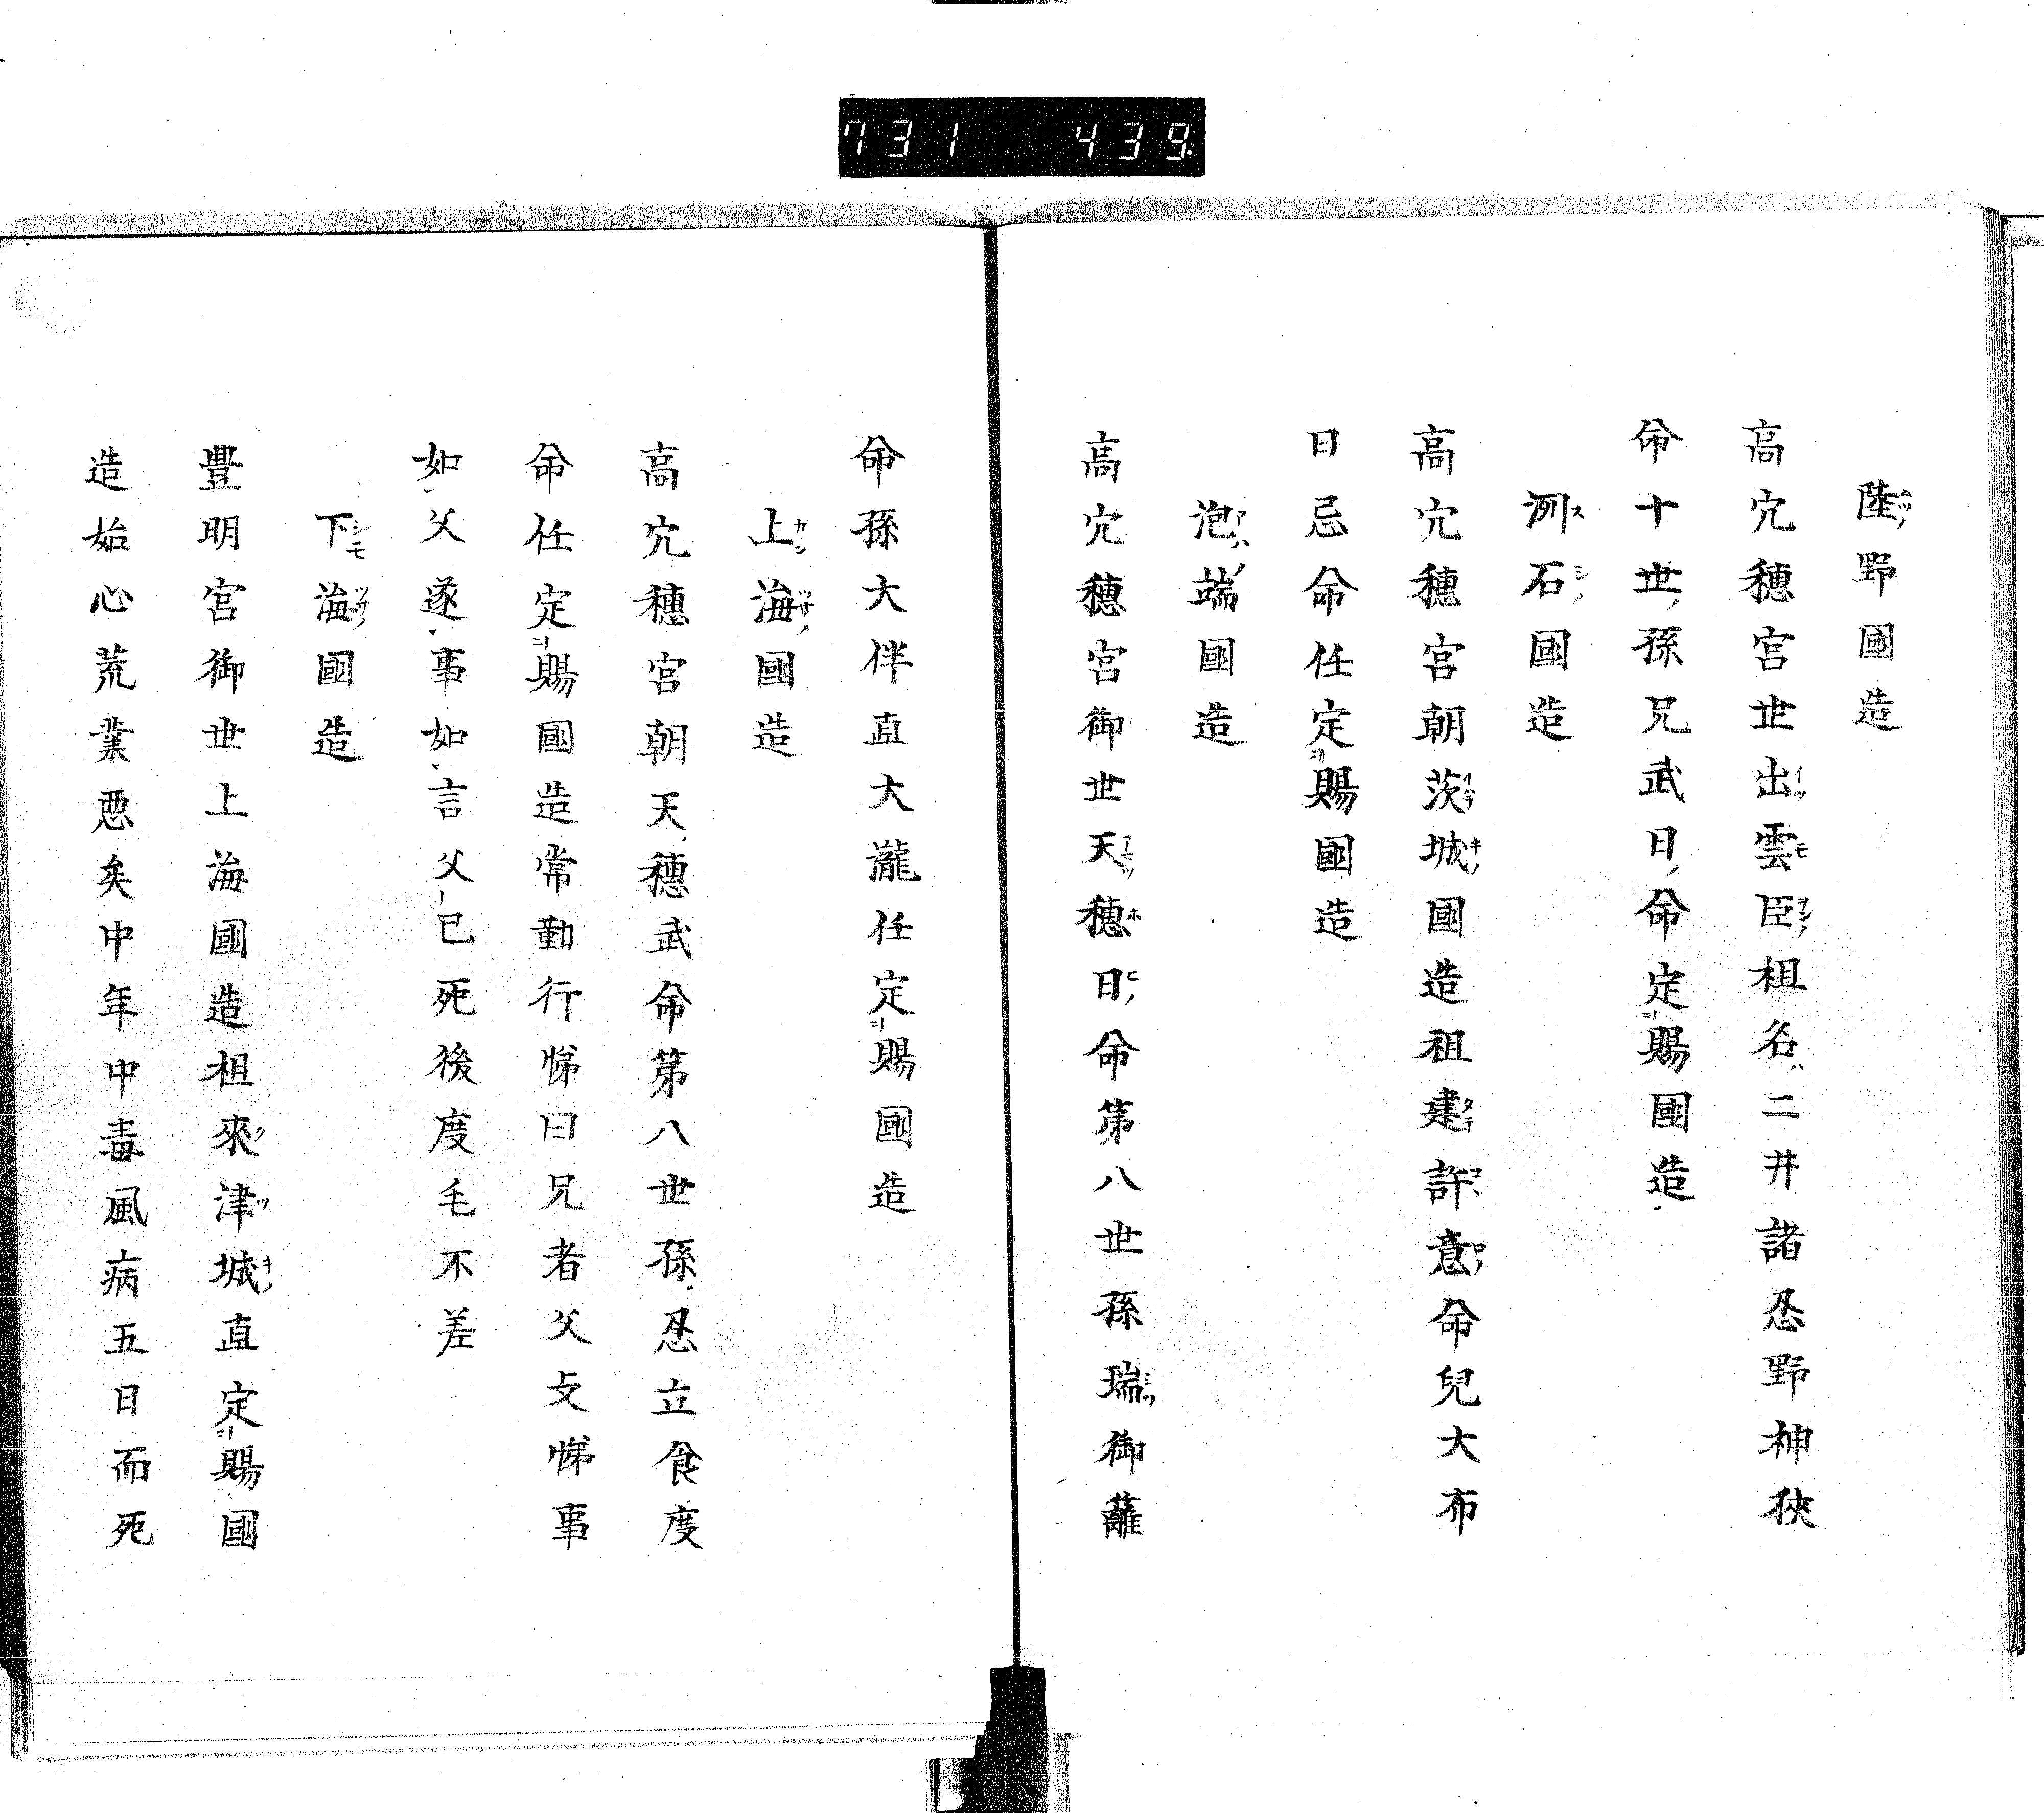 731 439
陸野國造
高穴穗宮世出雲臣祖名二井諸忍野神狹
命十世孫兄武日命定賜國造
洲石國造
高穴穗宮朝茨城國造祖建許意命兒大布
日忌命任定賜國造
泡端國造
高穴穗宮御世天穗日命第八世孫瑞御蘿
命孫大伴直大瀧任定賜國造
上海國造
高穴穗宮朝天穗武命第八世孫忍立食度
命任定賜國造常勤行悌曰兄者父攴悌事
如父遂事如言父已死後度毛不差
下海國造
豊明宮御世上海國造祖來津城直定賜國
造始心荒業悪矣中年中毒風病五日而死